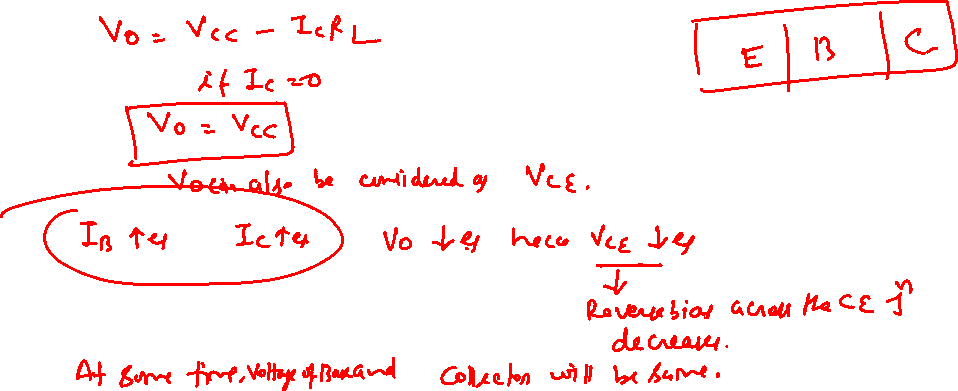 V₀ = Vcc - IcRL
E B C
if Ic = 0
V₀ = Vcc
Vo can also be considered as VCE.
IB ↑es Ic ↑es Vo ↓es hece VCE ↓es
↓
Reverse bias across the CE Jⁿ
decreases.
At some time, Voltage of Base and Collector will be same.